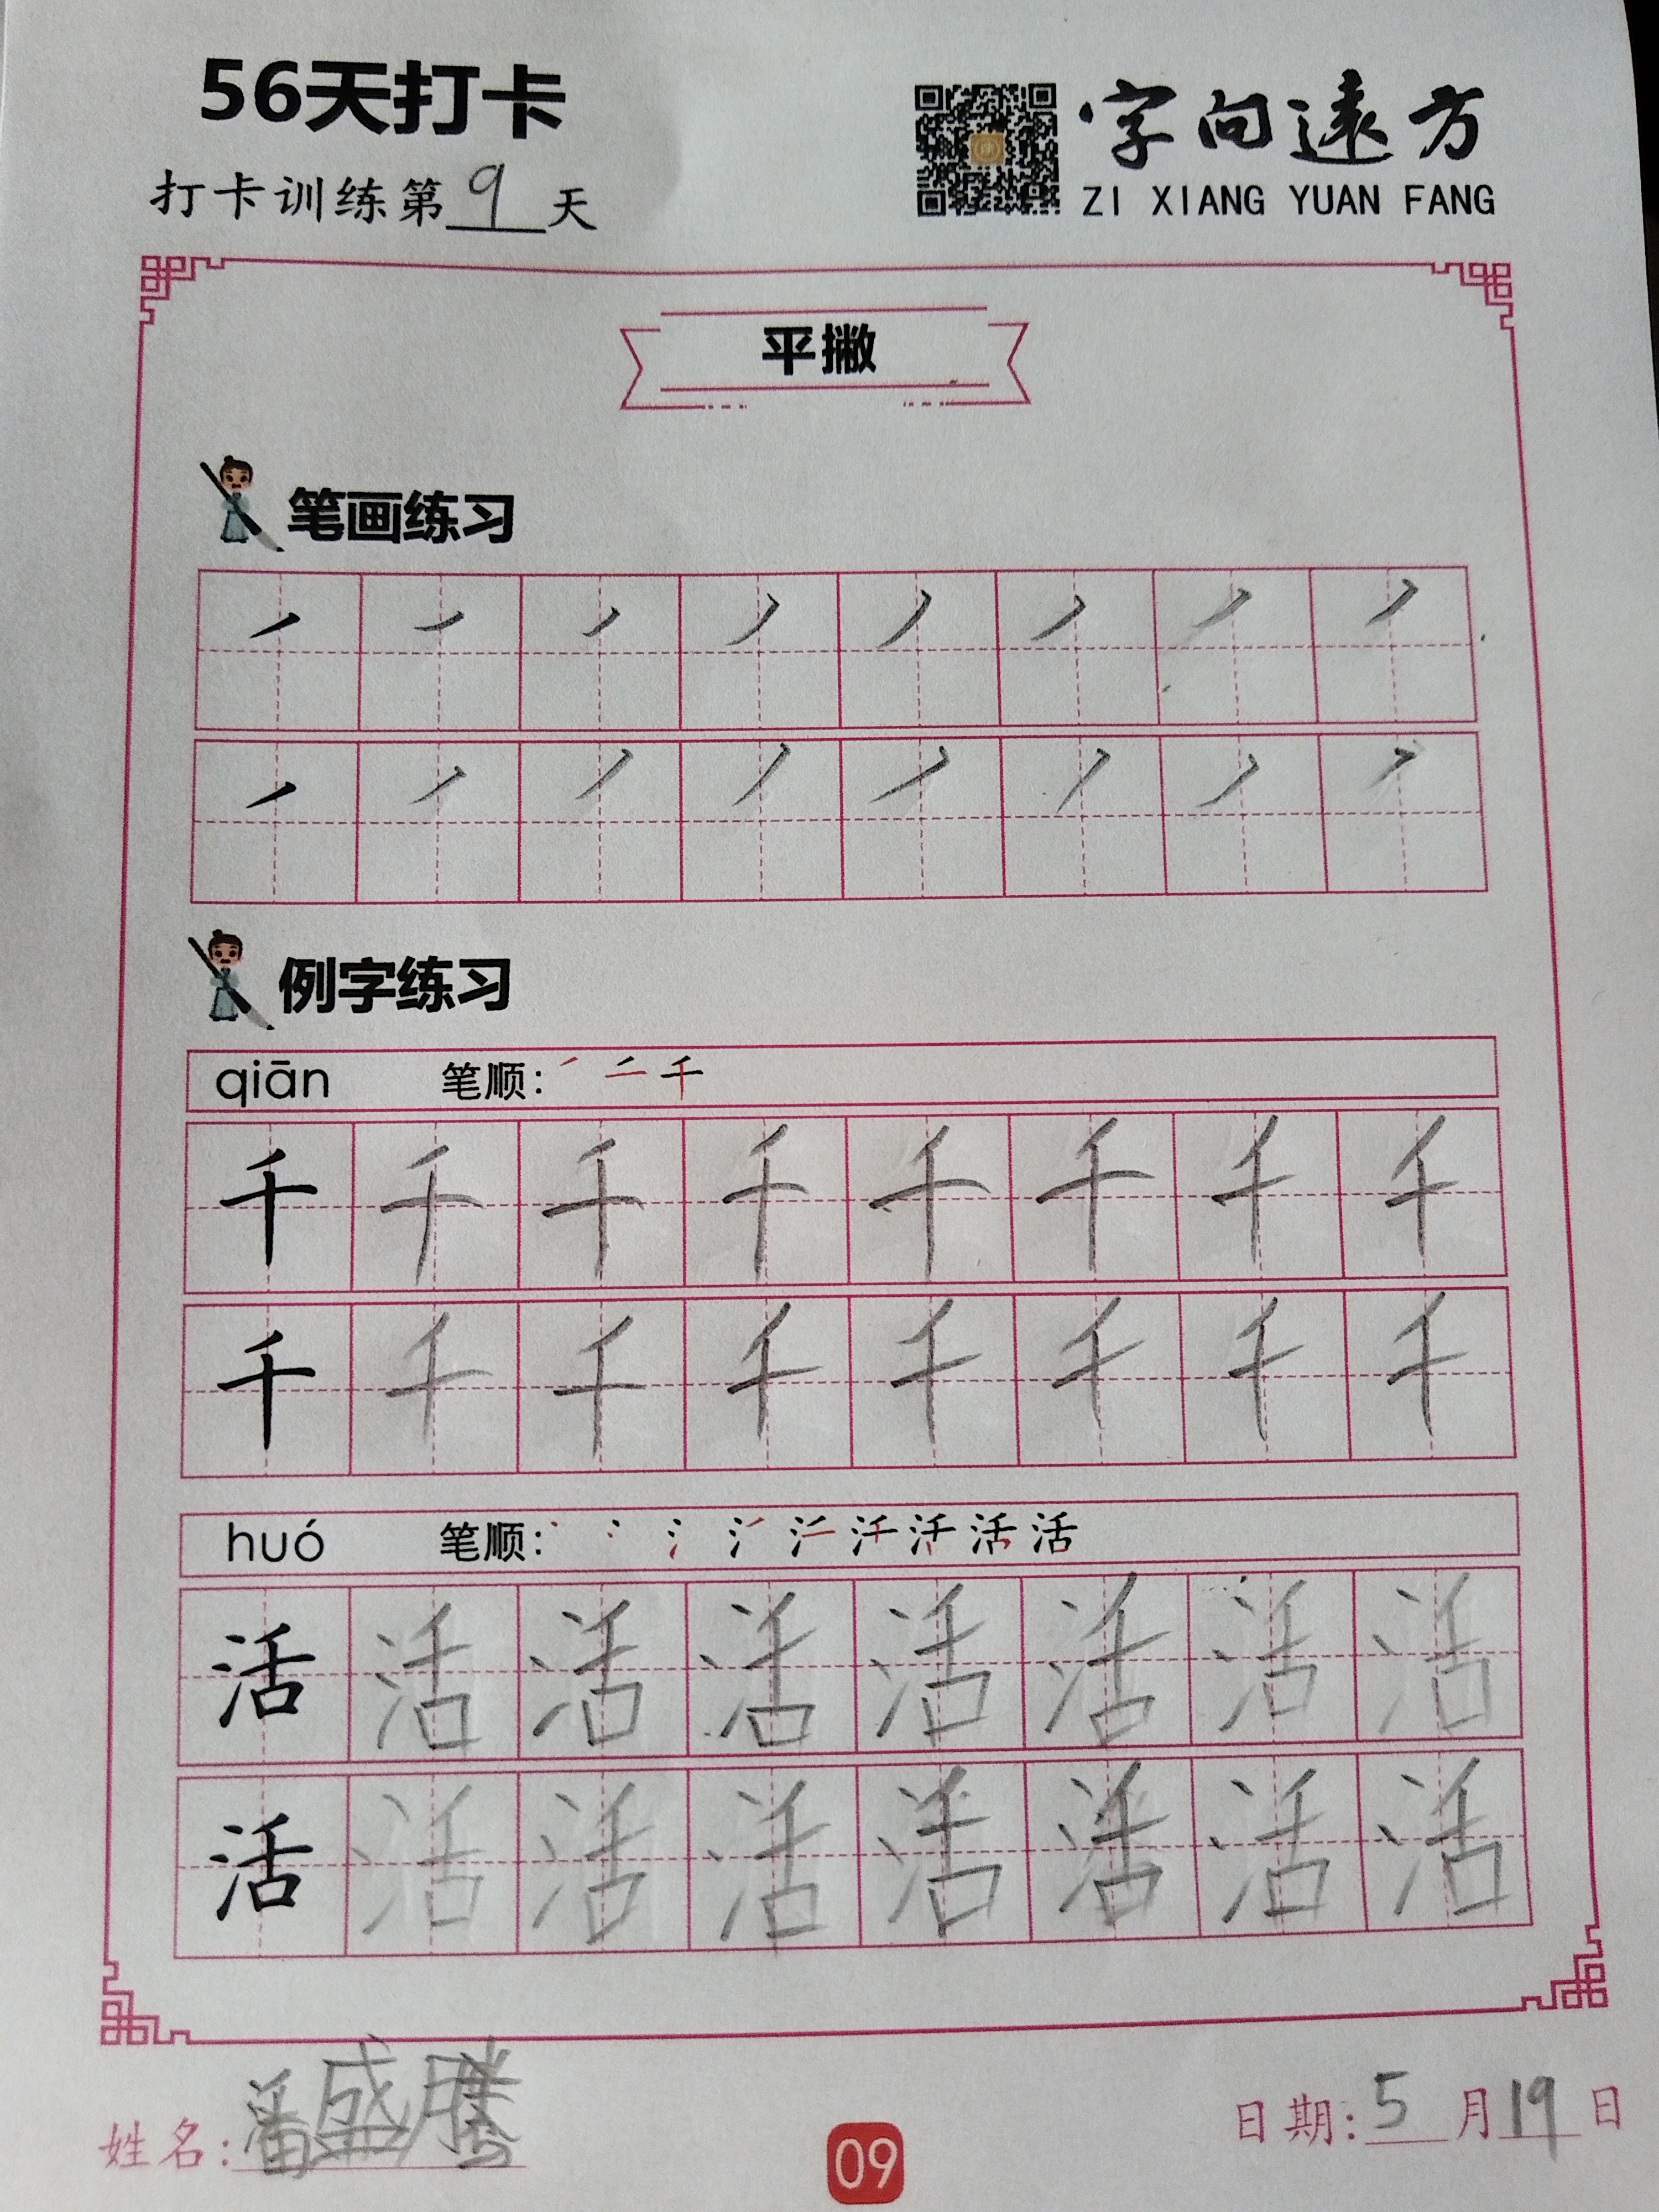 56天打卡
字向遠方
打卡训练第9天
ZI XIANG YUAN FANG
平撇
笔画练习
例字练习
qiān 笔顺：
千 千 千 千 千 千 千 千
千 千 千 千 千 千 千 千
huó 笔顺： 活
活 活 活 活 活 活 活 活
活 活 活 活 活 活 活 活
姓名：潘盛腾
日期：5月19日
09